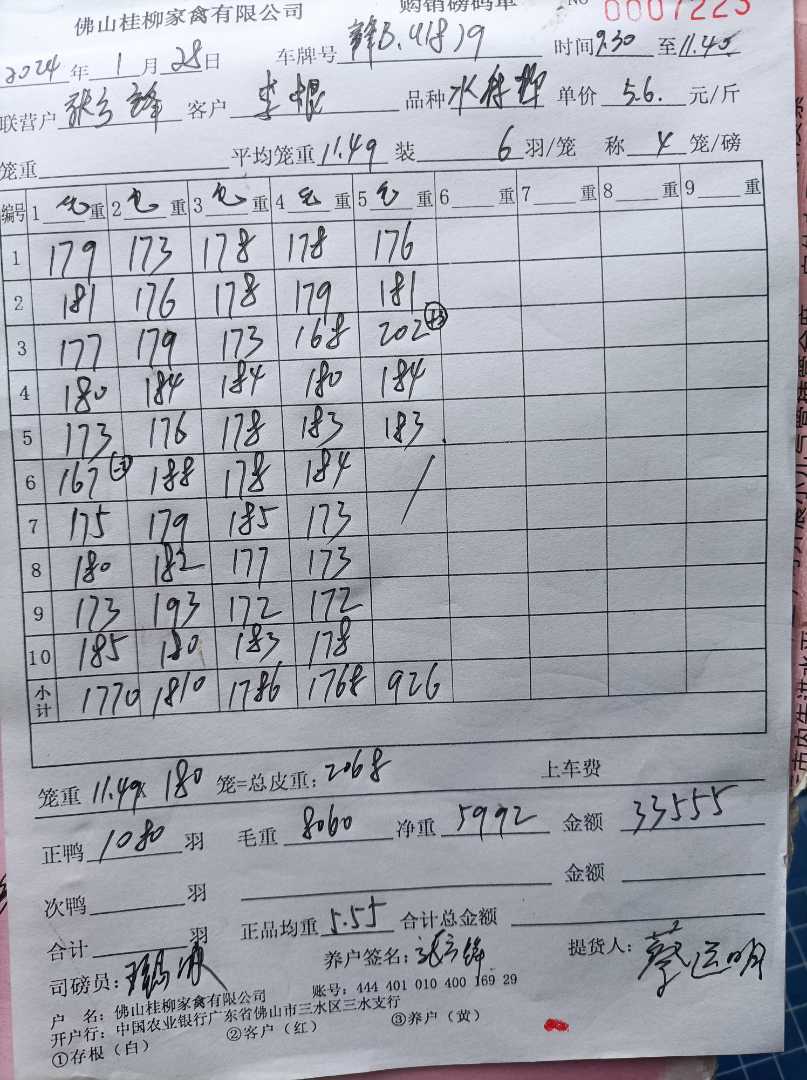 佛山桂柳家禽有限公司 购销磅码单 NO 0007223
2024年1月28日 车牌号 时间9.30至11.45
联营户 张 锋 客户 李 品种 水 单价 5.6. 元/斤
笼重 平均笼重 11.49 装 6 羽/笼 称 4 笼/磅
编号 1 毛 重 2 毛 重 3 毛 重 4 毛 重 5 毛 重 6 重 7 重 8 重 9 重
1 179 173 178 178 176
2 181 176 178 179 181
3 177 179 173 168 202
4 180 184 184 180 184
5 173 176 178 183 183
6 167 188 178 184 /
7 175 179 185 173
8 180 182 177 173
9 173 193 172 172
10 185 180 183 178
小计 1770 1810 1786 1768 926
笼重 11.49x 180 笼=总皮重: 2068 上车费
正鸭 1080 羽 毛重 8060 净重 5992 金额 33555
次鸭 羽 金额
合计 羽 正品均重 5.55 合计总金额
司磅员: 养户签名: 张 锋 提货人: 蔡运明
户 名: 佛山桂柳家禽有限公司 账号: 444 401 010 400 169 29
开户行: 中国农业银行广东省佛山市三水区三水支行
①存根（白） ②客户（红） ③养户（黄）